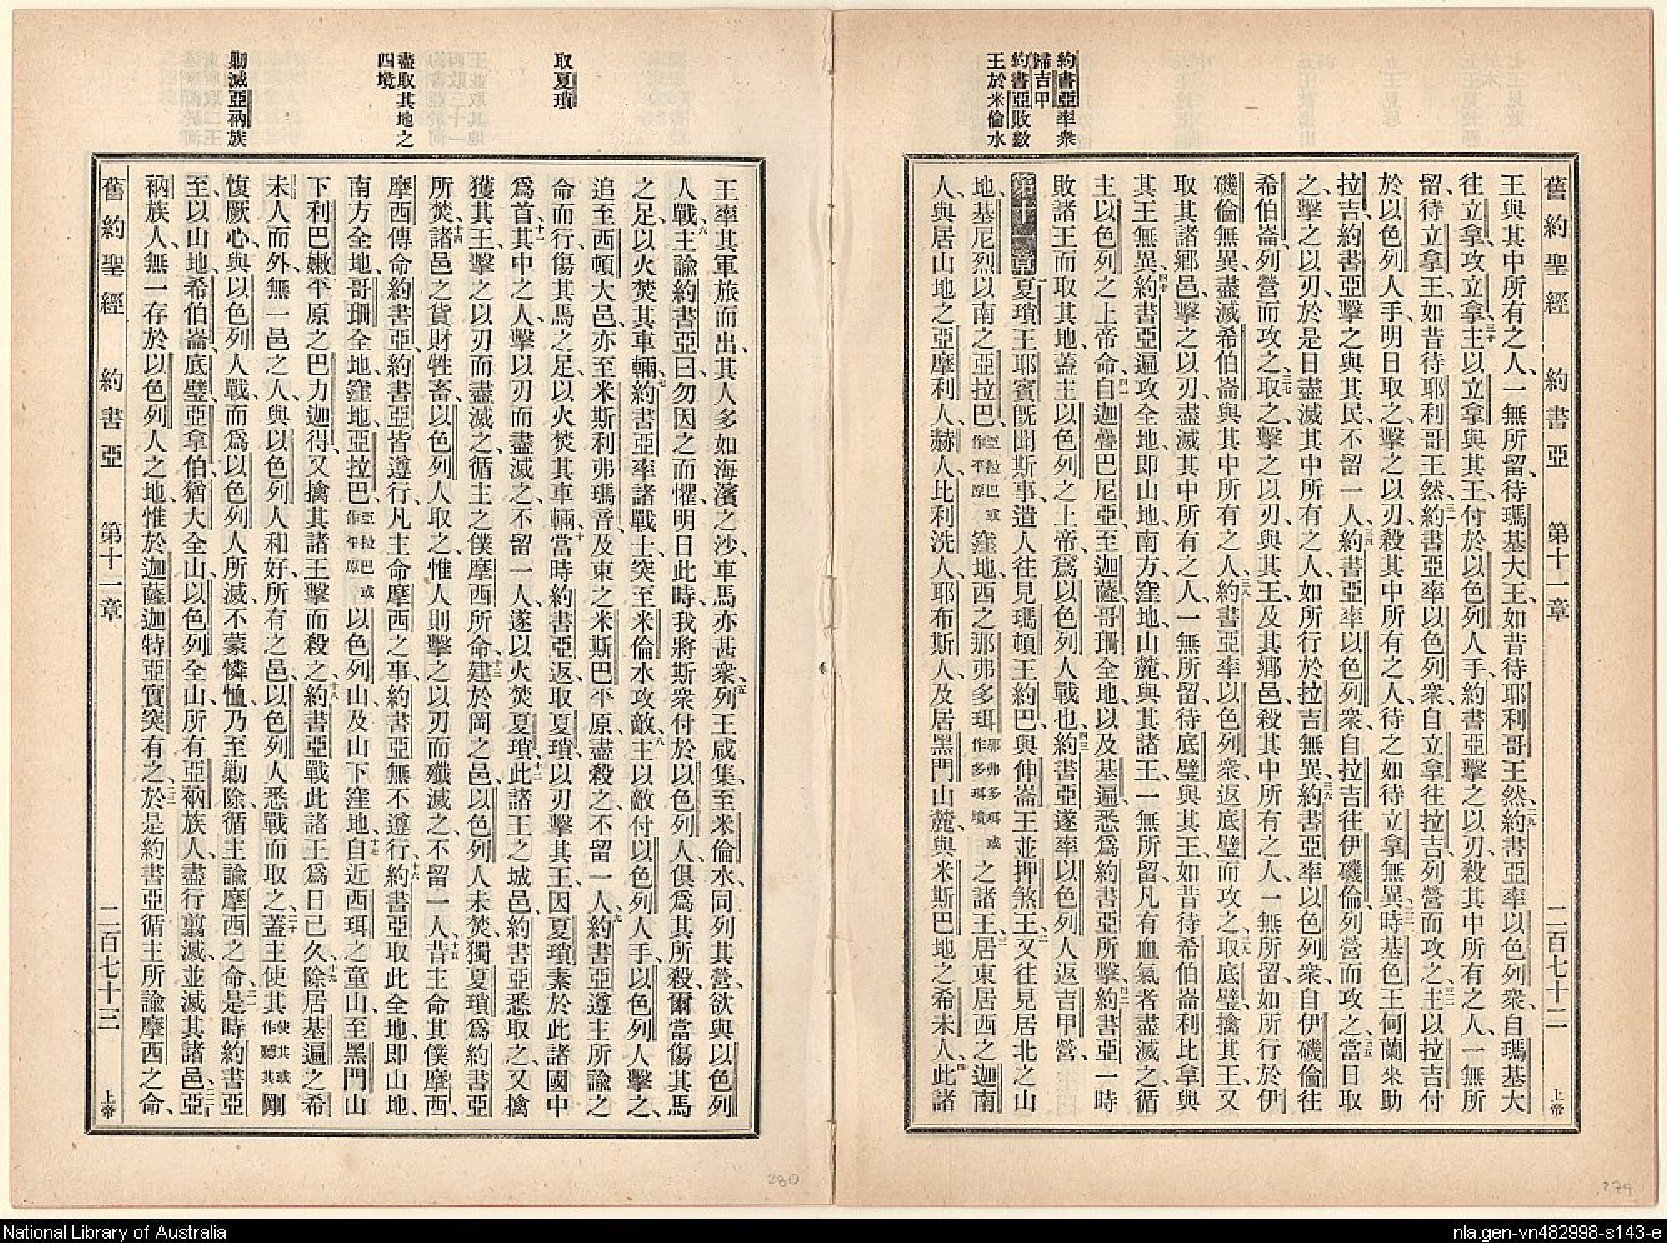 約書亞率衆
歸吉甲
約書亞敗數
王於米倫水
舊約聖經 約書亞 第十一章 二百七十二 上帝
王與其中所有之人、一無所留、待瑪基大王、如昔待耶利哥王然、二九約書亞率以色列衆、自瑪基大
往立拿、攻立拿、三十主以立拿與其王、付於以色列人手、約書亞擊之以刃、殺其中所有之人、一無所
留、待立拿王、如昔待耶利哥王然、三一約書亞率以色列衆、自立拿往拉吉、列營而攻之、三二主以拉吉付
於以色列人手、明日取之、擊之以刃、殺其中所有之人、待之如待立拿無異、三三時基色王何蘭來助
拉吉、約書亞擊之與其民、不留一人、三四約書亞率以色列衆、自拉吉往伊磯倫、列營而攻之、三五當日取
之、擊之以刃、於是日盡滅其中所有之人、如所行於拉吉無異、三六約書亞率以色列衆、自伊磯倫往
希伯崙、列營而攻之、三七取之、擊之以刃、與其王及其鄉邑、殺其中所有之人、一無所留、如所行於伊
磯倫無異、盡滅希伯崙與其中所有之人、三八約書亞率以色列衆、返底璧而攻之、三九取底璧、擒其王、又
取其諸鄉邑、擊之以刃、盡滅其中所有之人、一無所留、待底璧與其王、如昔待希伯崙利比拿與
其王無異、四十約書亞遍攻全地、即山地、南方、窪地、山麓、與其諸王、一無所留、凡有血氣者盡滅之、循
主以色列之上帝命、四一自迦疊巴尼亞、至迦薩、哥珊全地、以及基遍、悉爲約書亞所擊、四二約書亞一時
敗諸王而取其地、蓋主以色列之上帝、爲以色列人戰也、四三約書亞遂率以色列人返吉甲營、
第十一章 夏瑣王耶賓旣聞斯事、遣人往見瑪頓王約巴、與伸崙王、並押煞王、二又往見居北之山
地、基尼烈以南之亞拉巴、亞拉巴或作平原窪地、西之那弗多珥那弗多珥或作多珥墳之諸王、三居東居西之迦南
人、與居山地之亞摩利人、赫人、比利洗人、耶布斯人、及居黑門山麓、與米斯巴地之希未人、四此諸
取夏瑣
盡取其地之
四境
勦滅亞衲族
王率其軍旅而出、其人多如海濱之沙、車馬亦甚衆、五列王咸集、至米倫水、同列其營、欲與以色列
人戰、六主諭約書亞曰、勿因之而懼、明日此時、我將斯衆付於以色列人、俱爲其所殺、爾當傷其馬
之足、以火焚其車輛、七約書亞率諸戰士、突至米倫水攻敵、八主以敵付以色列人手、以色列人擊之、
追至西頓大邑、亦至米斯利弗瑪音、及東之米斯巴平原、盡殺之、不留一人、九約書亞遵主所諭之
命而行、傷其馬之足、以火焚其車輛、十當時約書亞返、取夏瑣、以刃擊其王、因夏瑣素於此諸國中
爲首、十一其中之人、擊以刃而盡滅之、不留一人、遂以火焚夏瑣、十二此諸王之城邑、約書亞悉取之、又擒
獲其王、擊之以刃而盡滅之、循主之僕摩西所命、十三建於岡之邑、以色列人未焚、獨夏瑣爲約書亞
所焚、十四諸邑之貨財牲畜、以色列人取之、惟人則擊之以刃而殲滅之、不留一人、十五昔主命其僕摩西、
摩西傳命約書亞、約書亞皆遵行、凡主命摩西之事、約書亞無不遵行、十六約書亞取此全地、即山地、
南方全地、哥珊全地、窪地、亞拉巴、亞拉巴或作平原以色列山、及山下窪地、十七自近西珥之童山、至黑門山
下利巴嫩平原之巴力迦得、又擒其諸王、擊而殺之、十八約書亞戰此諸王、爲日已久、十九除居基遍之希
未人而外、無一邑之人、與以色列人和好、所有之邑、以色列人悉戰而取之、二十蓋主使其使其或作聽其剛
愎厥心、與以色列人戰、而爲以色列人所滅、不蒙憐恤、乃至勦除、循主諭摩西之命、二一是時約書亞
至、以山地、希伯崙、底璧、亞拿伯、猶大全山、以色列全山、所有亞衲族人、盡行翦滅、並滅其諸邑、二二亞
衲族人、無一存於以色列人之地、惟於迦薩、迦特、亞實突有之、二三於是約書亞循主所諭摩西之命、
舊約聖經 約書亞 第十一章 二百七十三 上帝
280
279
National Library of Australia
nla.gen-vn482998-s143-e